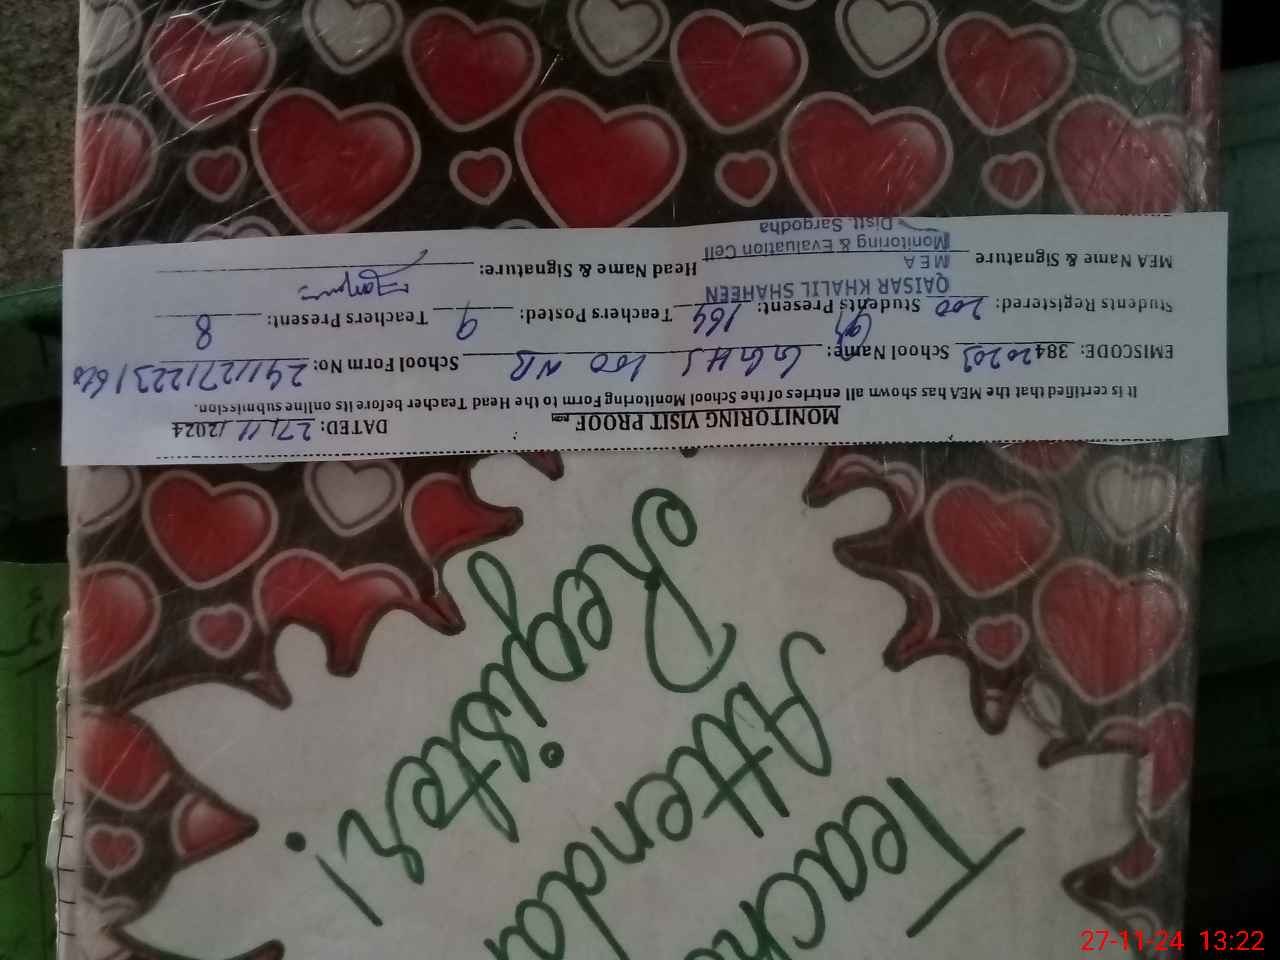 MONITORING VISIT PROOF
DATED: 27/11/2024
It is certified that the MEA has shown all entries of the School Monitoring Form to the Head Teacher before its online submission.
EMISCODE: 38420203 School Name: GGHS 100 NB School Form No:
Students Registered: 200 Students Present: 164 Teachers Posted: 9 Teachers Present: 8
QAISAR KHALIL SHAHEEN
MEA
Monitoring & Evaluation Cell
Distt. Sargodha
MEA Name & Signature Head Name & Signature:
Attenda
Register!
27-11-24 13:22